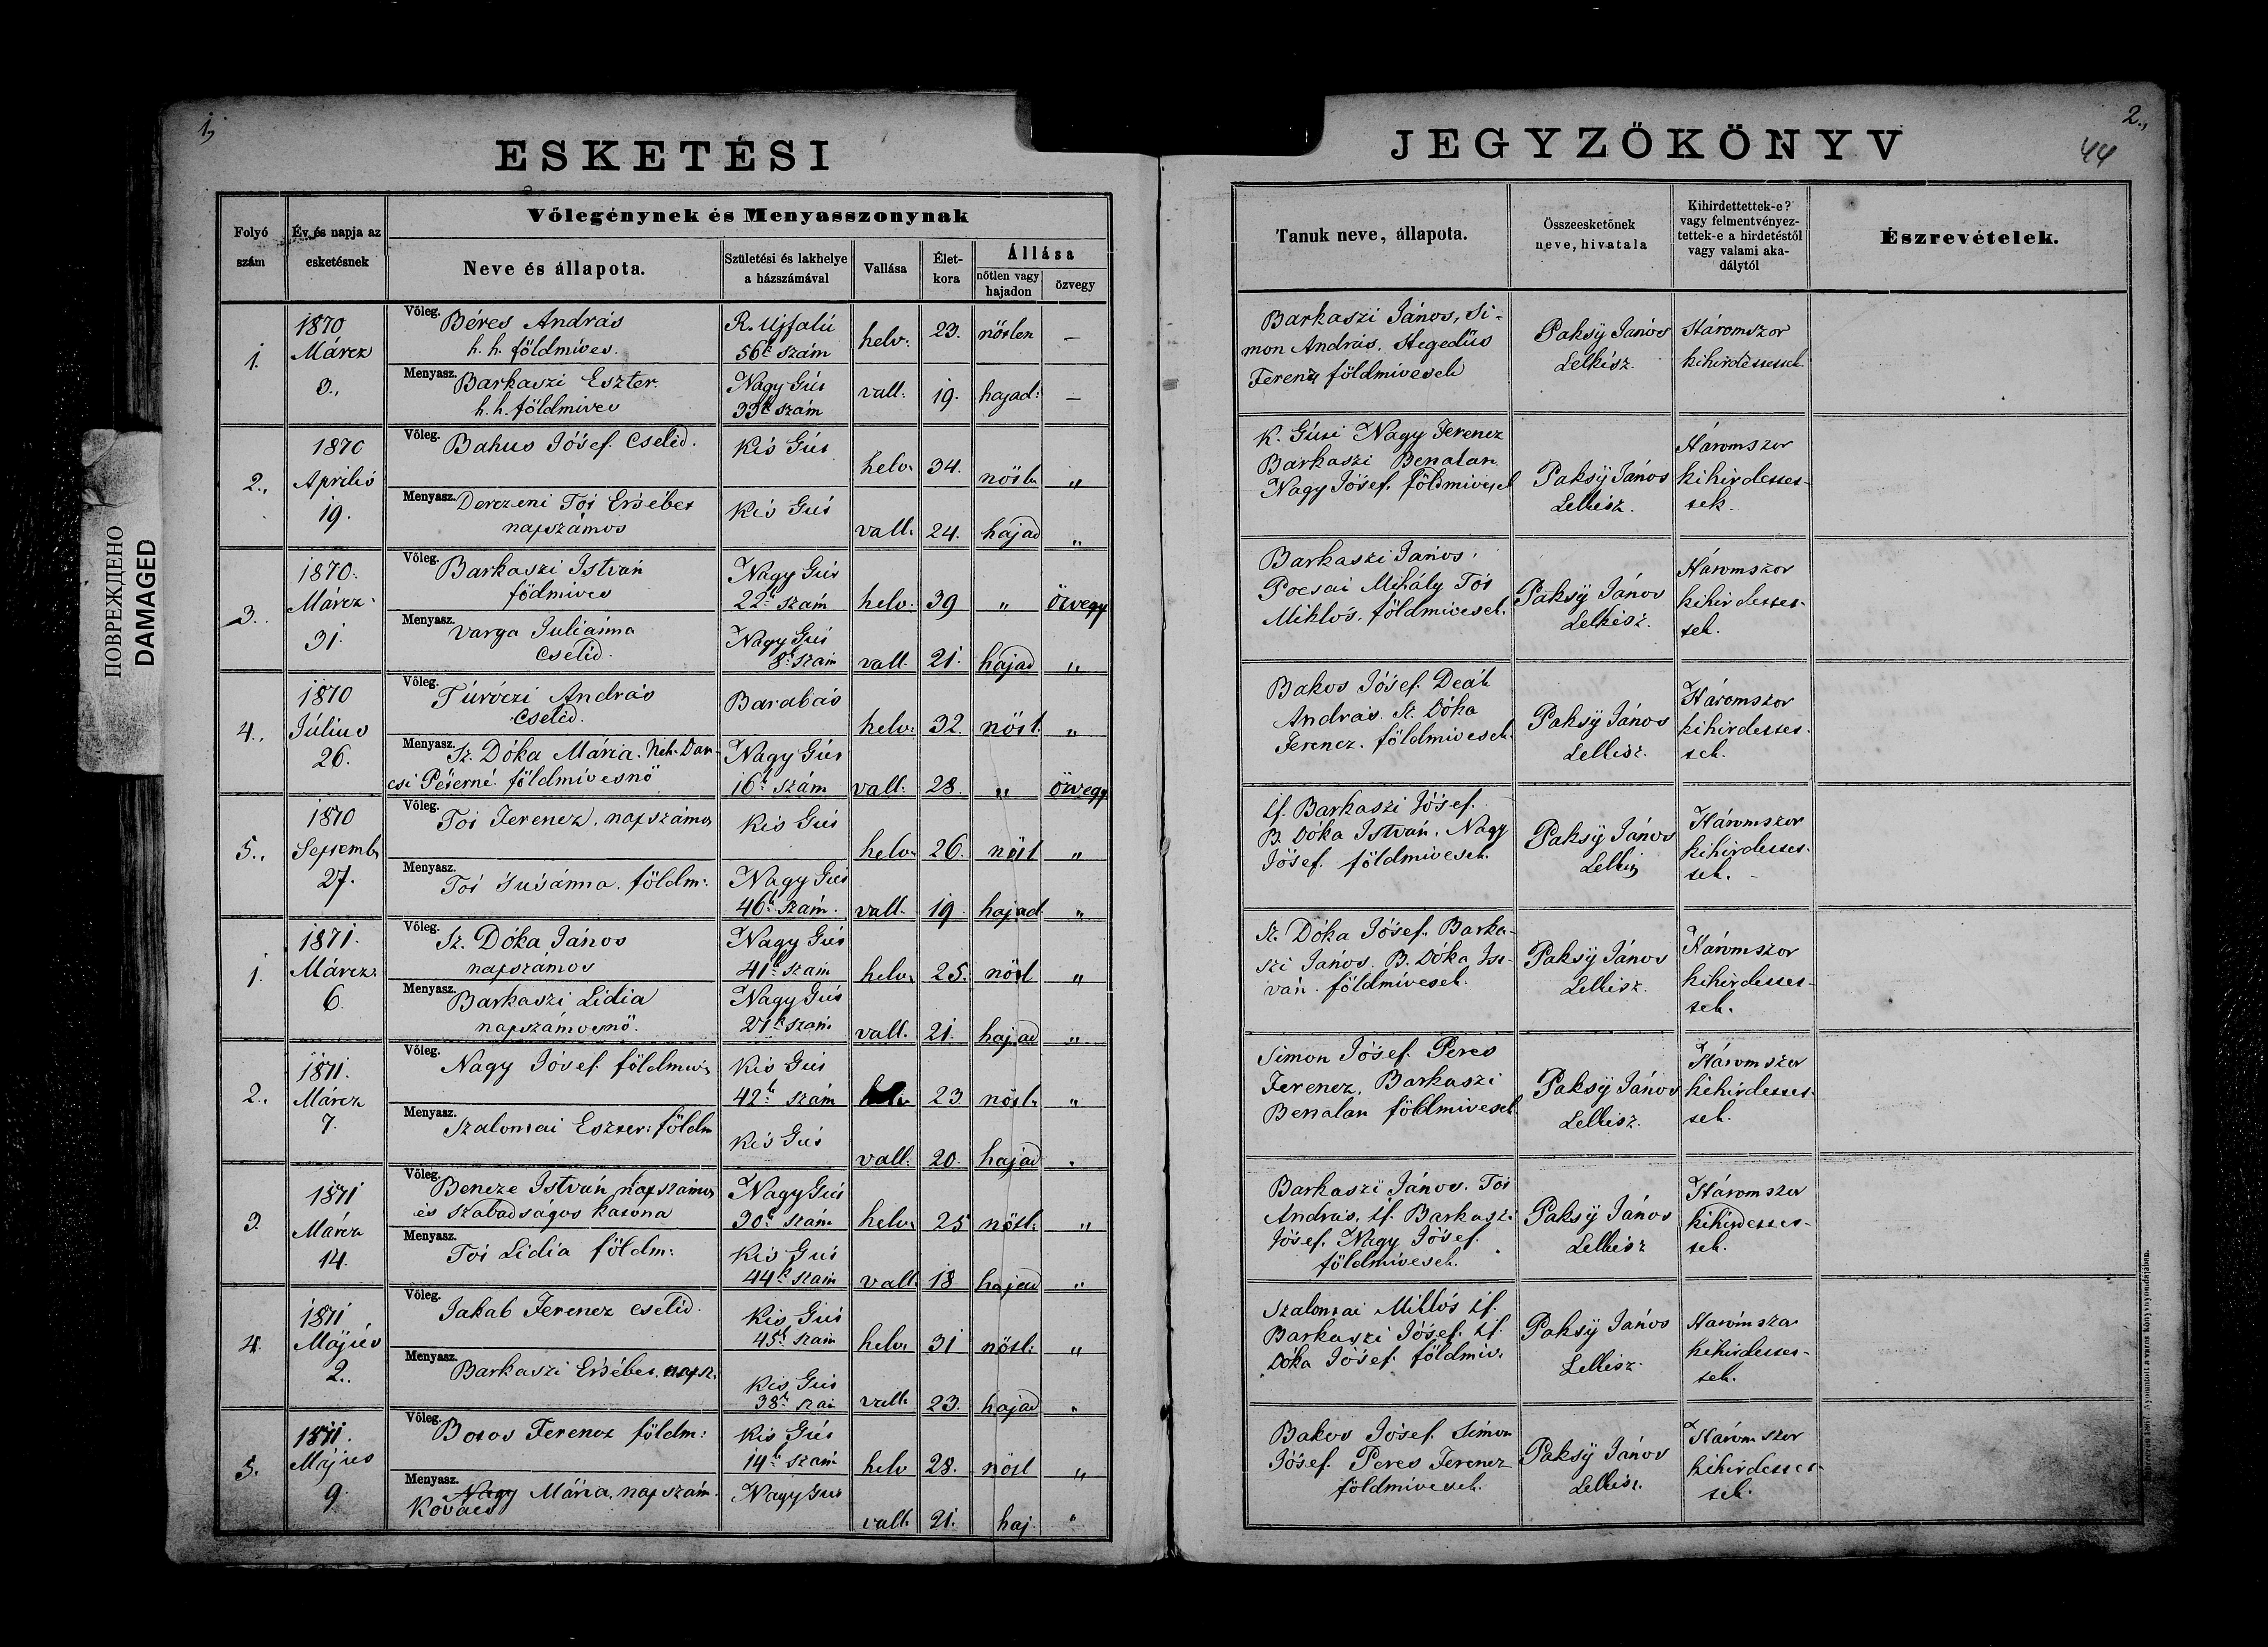 1,
ESKETÉSI
Folyó szám
Év és napja az esketésnek
Vőlegénynek és Menyasszonynak
Neve és állapota.
Születési és lakhelye a házszámával
Vallása
Élet-kora
Állása
nőtlen vagy hajadon
özvegy
1.
1870
Márcz
3.,
Vőleg. Béres András
h. h. földmíves.
R. Ujfalú
56k szám
helv: 23. nőtlen —
Menyasz. Barkaszi Eszter.
h. h. földmives
Nagy Gút
33k szám
vall: 19. hajad: —
2.,
1870
Aprilis
19.
Vőleg. Bakus Jósef. Cseléd.
Kis Gút
helv. 34. nőtln „
Menyasz. Derczeni Tót Ersébet
napszámos
Kis Gút
vall. 24. hajad „
3.
1870.
Márcz.
31.
Vőleg. Barkaszi István
födmives
Nagy Gút
22k szám
helv. 39 „ özvegy
Menyasz. Varga Juliánna
Cseléd.
Nagy Gút
8k szám
vall. 21. hajad „
4.,
1870
Július
26.
Vőleg. Túróczi András
Cseléd.
Barabás
helv. 32. nőtl. „
Menyasz. Sz. Dóka Mária. Néh. Dan-
csi Péterné földmivesnő
Nagy Gút
16k szám
vall. 28. „ özvegy
5.,
1870
Septemb.
27.
Vőleg. Tót Ferencz. napszámos
Kis Gút
helv. 26. nőtl „
Menyasz. Tót Susánna. földm:
Nagy Gút
46k szám.
vall. 19 hajad „
1.
1871.
Márcz.
6.
Vőleg. Sz. Dóka János
napszámos
Nagy Gút
41k szám
helv. 25. nőtl „
Menyasz. Barkaszi Lidia
napszámosnő.
Nagy Gút
21k szám
vall. 21. hajad „
2.,
1871.
Márcz
7.
Vőleg. Nagy Jósef földmiv.
Kis Gút
42k szám
helv. 23. nőtl. „
Menyasz. Szalontai Eszter: földm
Kis Gút
vall. 20. hajad „
3.
1871
Márcz
14.
Vőleg. Bencze István napszámos
és szabadságos katona
Nagy Gút
30k szám
helv. 25 nőtl. „
Menyasz. Tót Lidia földm:
Kis Gút
44k szám
vall. 18 hajad „
4.
1871
Május
2.
Vőleg. Jakab Ferencz cseléd.
Kis Gút
45k szám
helv. 31 nőtl: „
Menyasz. Barkaszi Ersébet. napsz.
Kis Gút
38k szá
vall. 23. hajad „
5.
1871.
Május
9.
Vőleg. Botos Ferencz földm:
Kis Gút
14k szám
helv 28. nőtl „
Menyasz. Nagy Mária, napszám.
Kovács
Nagy Gut
vall. 21. haj. „
2.,
44
JEGYZŐKÖNYV
Tanuk neve, állapota.
Összeesketőnek neve, hivatala
Kihirdettettek-e? vagy felmentvényez-tettek-e a hirdetéstől vagy valami aka-dálytól
Észrevételek.
Barkaszi János, Si-
mon András. Hegedűs
Ferencz földmivesek
Paksÿ János
Lelkész.
Háromszor
kihirdettettek
K. Gúti Nagy Ferencz
Barkaszi Bertalan
Nagy Jósef. földmivesek
Paksÿ János
Lelkész.
Háromszor
kihirdettet-
tek.
Barkaszi János.
Pocsai Mihály Tót
Miklós. földmivesek.
Paksÿ János
Lelkész.
Háromszor
kihirdettet-
tek.
Bakos Jósef. Deák
András. Sz. Dóka
Ferencz. földmivesek.
Paksÿ János
Lelkész.
Háromszor
kihirdettet-
tek.
if. Barkaszi Jósef.
B. Dóka István. Nagy
Jósef. földmivesek.
Paksÿ János
Lelkész
Háromszor
kihirdettet-
tek.
Sz. Dóka Jósef. Barka-
szi János. B. Dóka Ist-
ván. földmivesek.
Paksÿ János
Lelkész.
Háromszor
kihirdettet-
tek.
Simon Jósef. Peres
Ferencz. Barkaszi
Bertalan földmivesek
Paksÿ János
Lelkész.
Háromszor
kihirdettet-
tek.
Barkaszi János. Tót
András, if. Barkaszi
Jósef. Nagy Jósef.
földmivesek.
Paksÿ János
Lelkész
Háromszor
kihirdettet-
tek.
Szalontai Miklós if.
Barkaszi Jósef. if.
Dóka Jósef. földmiv.
Paksÿ János
Lelkész.
Háromszor
kihirdettet-
tek.
Bakos Jósef. Simon
Jósef. Peres Ferencz
földmivesek.
Paksÿ János
Lelkész.
Háromszor
kihirdettet-
tek.
ПОВРЕЖДЕНО
DAMAGED